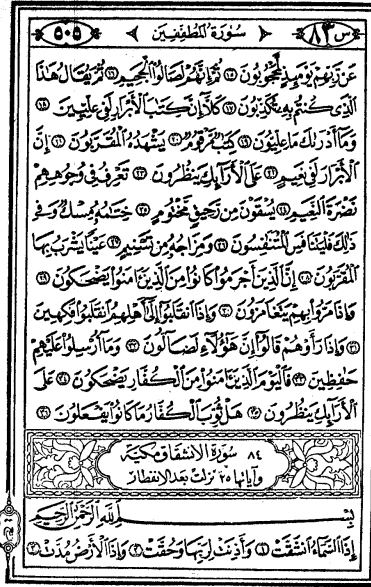 ٥٠٥ سورة المطففين س ٨٣
عَن رَّبِّهِمْ يَوْمَئِذٍ لَّمَحْجُوبُونَ ١٥ ثُمَّ إِنَّهُمْ لَصَالُوا الْجَحِيمِ ١٦ ثُمَّ يُقَالُ هَٰذَا
الَّذِي كُنتُم بِهِ تُكَذِّبُونَ ١٧ كَلَّا إِنَّ كِتَابَ الْأَبْرَارِ لَفِي عِلِّيِّينَ ١٨
وَمَا أَدْرَاكَ مَا عِلِّيُّونَ ١٩ كِتَابٌ مَّرْقُومٌ ٢٠ يَشْهَدُهُ الْمُقَرَّبُونَ ٢١ إِنَّ
الْأَبْرَارَ لَفِي نَعِيمٍ ٢٢ عَلَى الْأَرَائِكِ يَنظُرُونَ ٢٣ تَعْرِفُ فِي وُجُوهِهِمْ
نَضْرَةَ النَّعِيمِ ٢٤ يُسْقَوْنَ مِن رَّحِيقٍ مَّخْتُومٍ ٢٥ خِتَامُهُ مِسْكٌ وَفِي
ذَٰلِكَ فَلْيَتَنَافَسِ الْمُتَنَافِسُونَ ٢٦ وَمِزَاجُهُ مِن تَسْنِيمٍ ٢٧ عَيْنًا يَشْرَبُ بِهَا
الْمُقَرَّبُونَ ٢٨ إِنَّ الَّذِينَ أَجْرَمُوا كَانُوا مِنَ الَّذِينَ آمَنُوا يَضْحَكُونَ ٢٩
وَإِذَا مَرُّوا بِهِمْ يَتَغَامَزُونَ ٣٠ وَإِذَا انقَلَبُوا إِلَىٰ أَهْلِهِمُ انقَلَبُوا فَكِهِينَ
٣١ وَإِذَا رَأَوْهُمْ قَالُوا إِنَّ هَٰؤُلَاءِ لَضَالُّونَ ٣٢ وَمَا أُرْسِلُوا عَلَيْهِمْ
حَافِظِينَ ٣٣ فَالْيَوْمَ الَّذِينَ آمَنُوا مِنَ الْكُفَّارِ يَضْحَكُونَ ٣٤ عَلَى
الْأَرَائِكِ يَنظُرُونَ ٣٥ هَلْ ثُوِّبَ الْكُفَّارُ مَا كَانُوا يَفْعَلُونَ ٣٦
٨٤ سورة الانشقاق مكية
وآياتها ٢٥ نزلت بعد الانفطار
بِسْمِ اللَّهِ الرَّحْمَٰنِ الرَّحِيمِ
إِذَا السَّمَاءُ انشَقَّتْ ١ وَأَذِنَتْ لِرَبِّهَا وَحُقَّتْ ٢ وَإِذَا الْأَرْضُ مُدَّتْ ٣